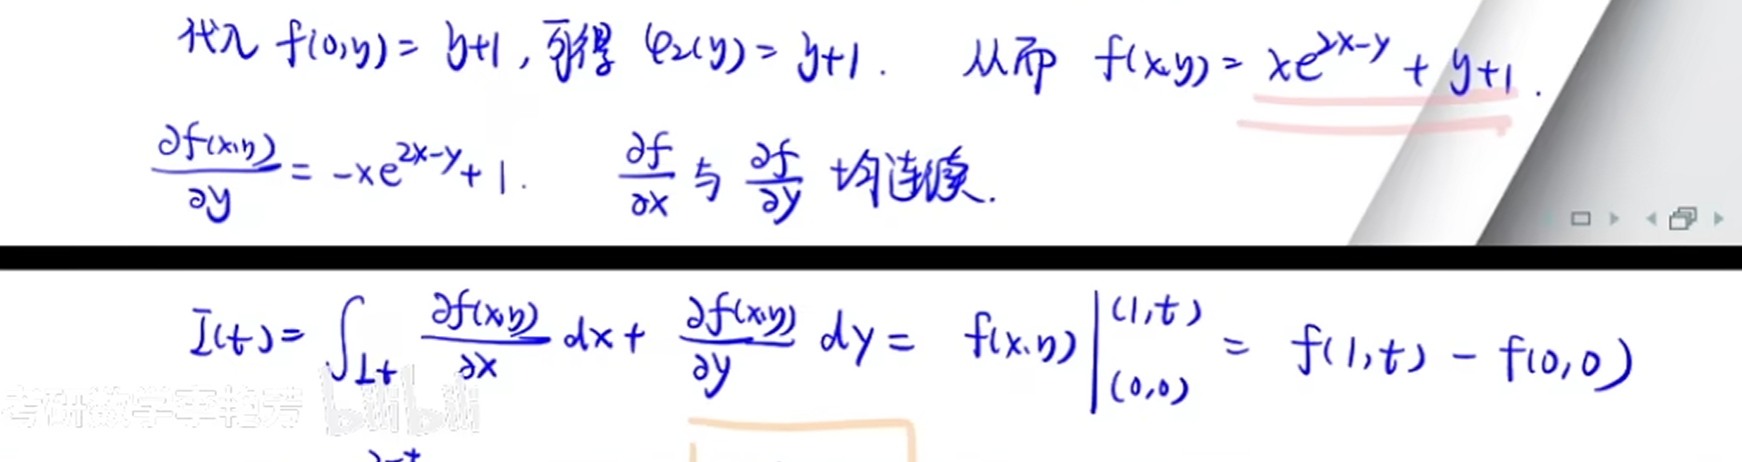 代入 f(0,y) = y+1, 可得 φ₂(y) = y+1. 从而 f(x,y) = xe^{2x-y} + y+1.
∂f(x,y)/∂y = -xe^{2x-y} + 1. ∂f/∂x 与 ∂f/∂y 均连续.
I(t) = ∫_{Lt} ∂f(x,y)/∂x dx + ∂f(x,y)/∂y dy = f(x,y) |_{(0,0)}^{(1,t)} = f(1,t) - f(0,0)
考研数学李艳芳 bilibili